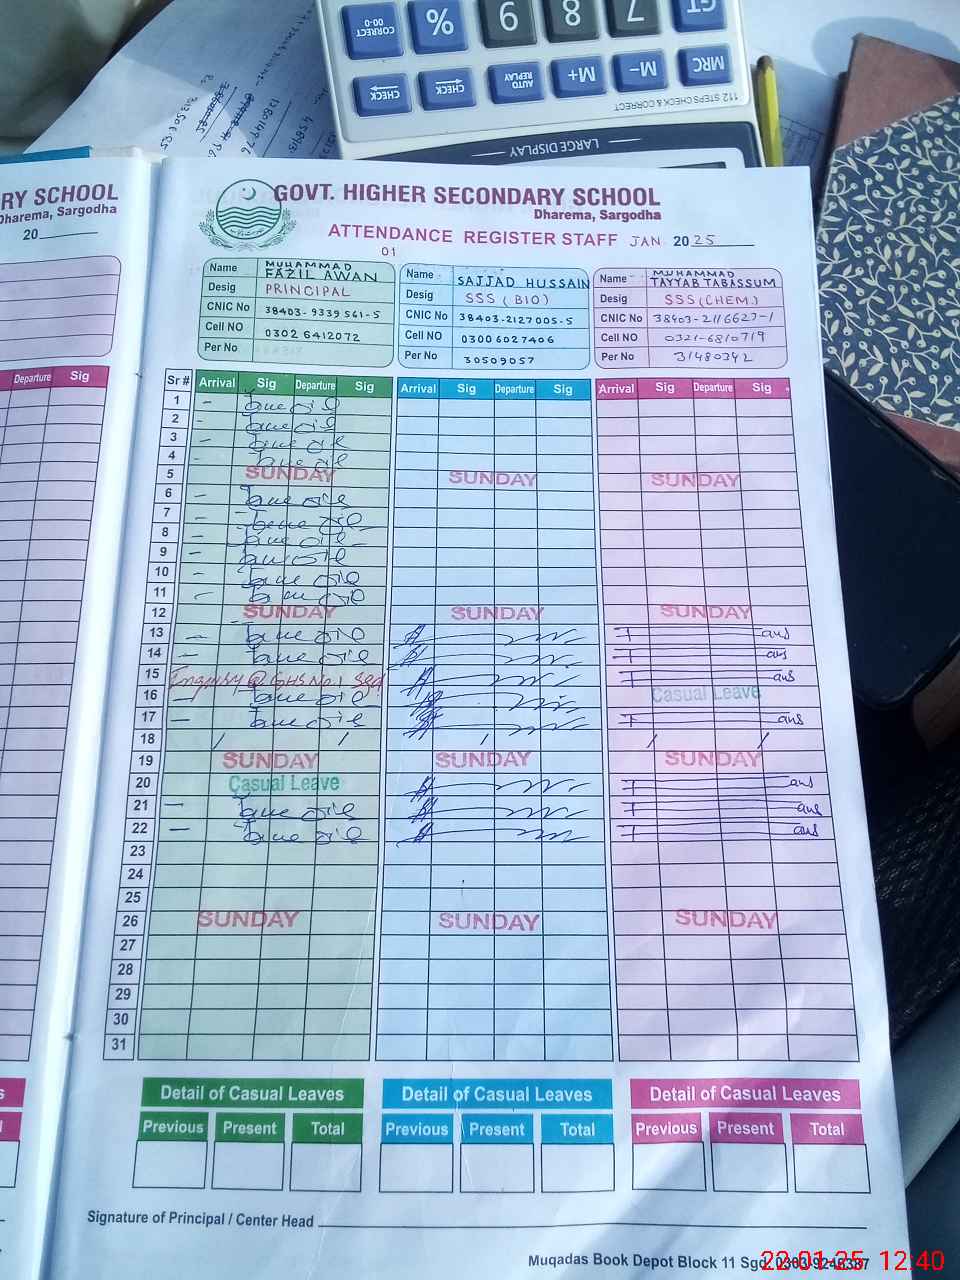 CORRECT 00-0
%
9
8
7
GT
CHECK
CHECK
AUTO REPLAY
M+
M−
MRC
112 STEPS CHECK & CORRECT
LARGE DISPLAY
RY SCHOOL
Dharema, Sargodha
20
Departure Sig
GOVT. HIGHER SECONDARY SCHOOL
Dharema, Sargodha
ATTENDANCE REGISTER STAFF JAN 2025
01
Name MUHAMMAD FAZIL AWAN
Desig PRINCIPAL
CNIC No 38403-9339561-5
Cell NO 0302 6412072
Per No
Name SAJJAD HUSSAIN
Desig SSS (BIO)
CNIC No 38403-2127005-5
Cell NO 03006027406
Per No 30509057
Name MUHAMMAD TAYYAB TABASSUM
Desig SSS (CHEM.)
CNIC No 38403-2116627-1
Cell NO 0321-6810719
Per No 31480342
Sr # Arrival Sig Departure Sig Arrival Sig Departure Sig Arrival Sig Departure Sig
1
2
3
4
5 SUNDAY SUNDAY SUNDAY
6
7
8
9
10
11
12 SUNDAY SUNDAY SUNDAY
13
14
15 Inquiry @ GHS No.1 Sgd
16 Casual Leave
17
18
19 SUNDAY SUNDAY SUNDAY
20 Casual Leave
21
22
23
24
25
26 SUNDAY SUNDAY SUNDAY
27
28
29
30
31
Detail of Casual Leaves Detail of Casual Leaves Detail of Casual Leaves
Previous Present Total Previous Present Total Previous Present Total
Signature of Principal / Center Head
Muqadas Book Depot Block 11 Sgd.
22.01.25 12:40